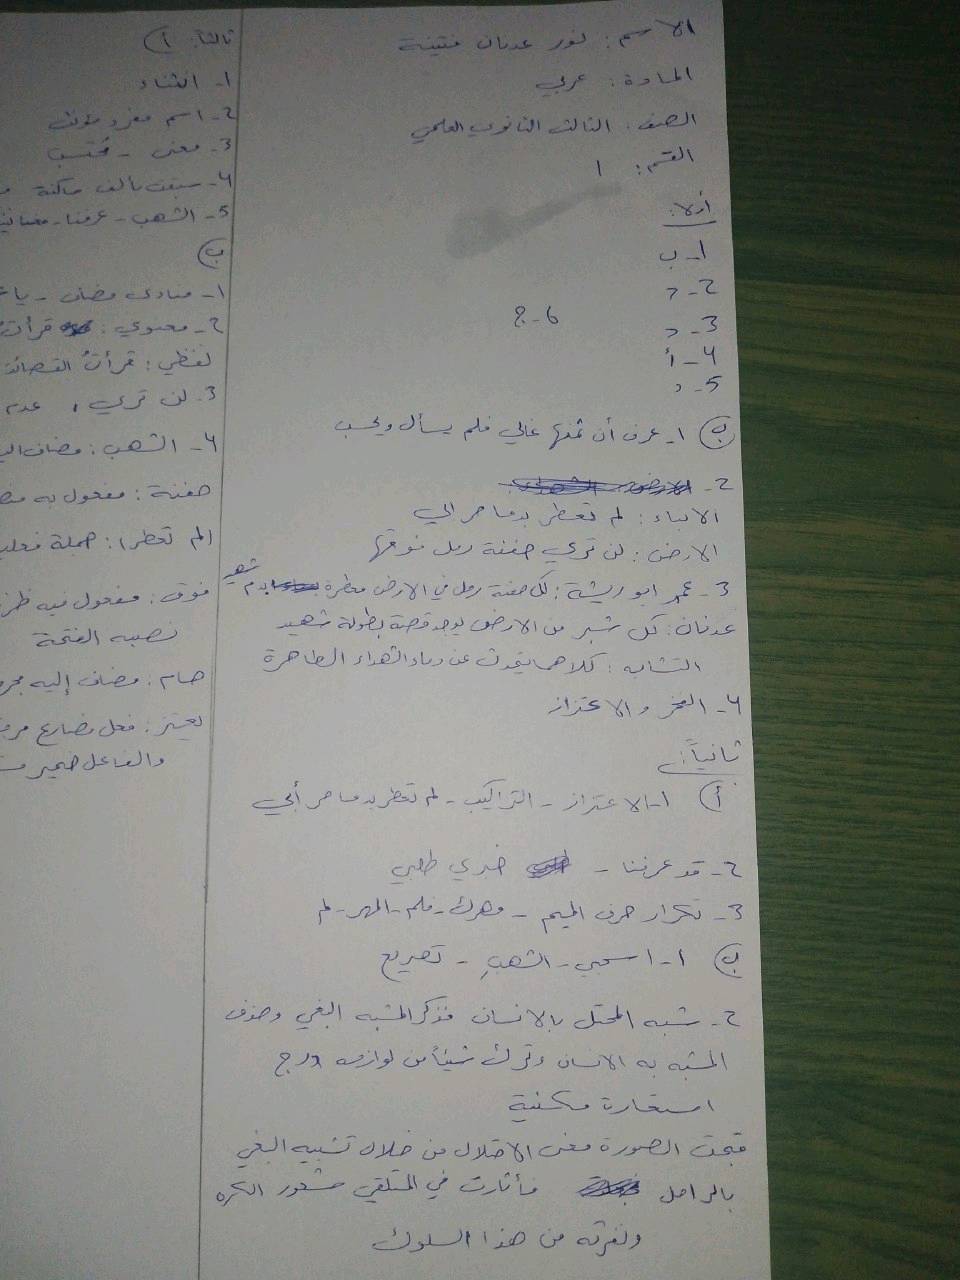 الاسم: نور عدنان فتينة
المادة: عربي
الصف: الثالث الثانوي العلمي
القسم: ١
أولا:
1- ب
2- د
3- د
4- أ
5- د
6- ج
ب) 1- عرف أن ثمنها غالي فلم يسأل ويحسب
2-
الاباء: لم تعطر بدما حر ابي
الارض: لن تري حفنة رمل فوقها
3- عمر ابو ريشة: كل حفنة رمل في الارض معطرة بدم شهيد
عدنان: كل شبر من الارض يوجد قصة بطولة شهيد
التشابه: كلاهما يتحدث عن دماء الشهداء الطاهرة
4- الفخر والاعتزاز
ثانياً:
أ) 1- الاعتزاز - التراكيب - لم تعطر بدما حر أبي
2- قد عرفنا -
3- تكرار حرف الميم - مهرك - فلم - المهر - لم
ب) 1- اسحبي - الشهبِ - تصريع
2- شبه المحتل بالانسان فذكر المشبه البغي وحذف
المشبه به الانسان وترك شيئاً من لوازمه
استعارة مكنية
قبحت الصورة معنى الاحتلال من خلال تشبيه البغي
بالراحل فأثارت في المتلقي شعور الكره
ونفرته من هذا السلوك
ثالثاً: أ)
1- الثناء
2- اسم مفرد مؤنث
3- معنى - محتسب
4- سبقت بألف ساكنة
5- الشهب - عرفنا -
ب)
1- منادى مضاف -
2- معنوي: قرأت
لفظي: قرأتُ القصائد
3- لن تري، عدم
4- الشهب: مضاف إليه
حفنة: مفعول به
لم تعطر: جملة فعلية
فوق: مفعول فيه ظرف
نصبه الفتحة
حسام: مضاف إليه
يعتز: فعل مضارع
والفاعل ضمير